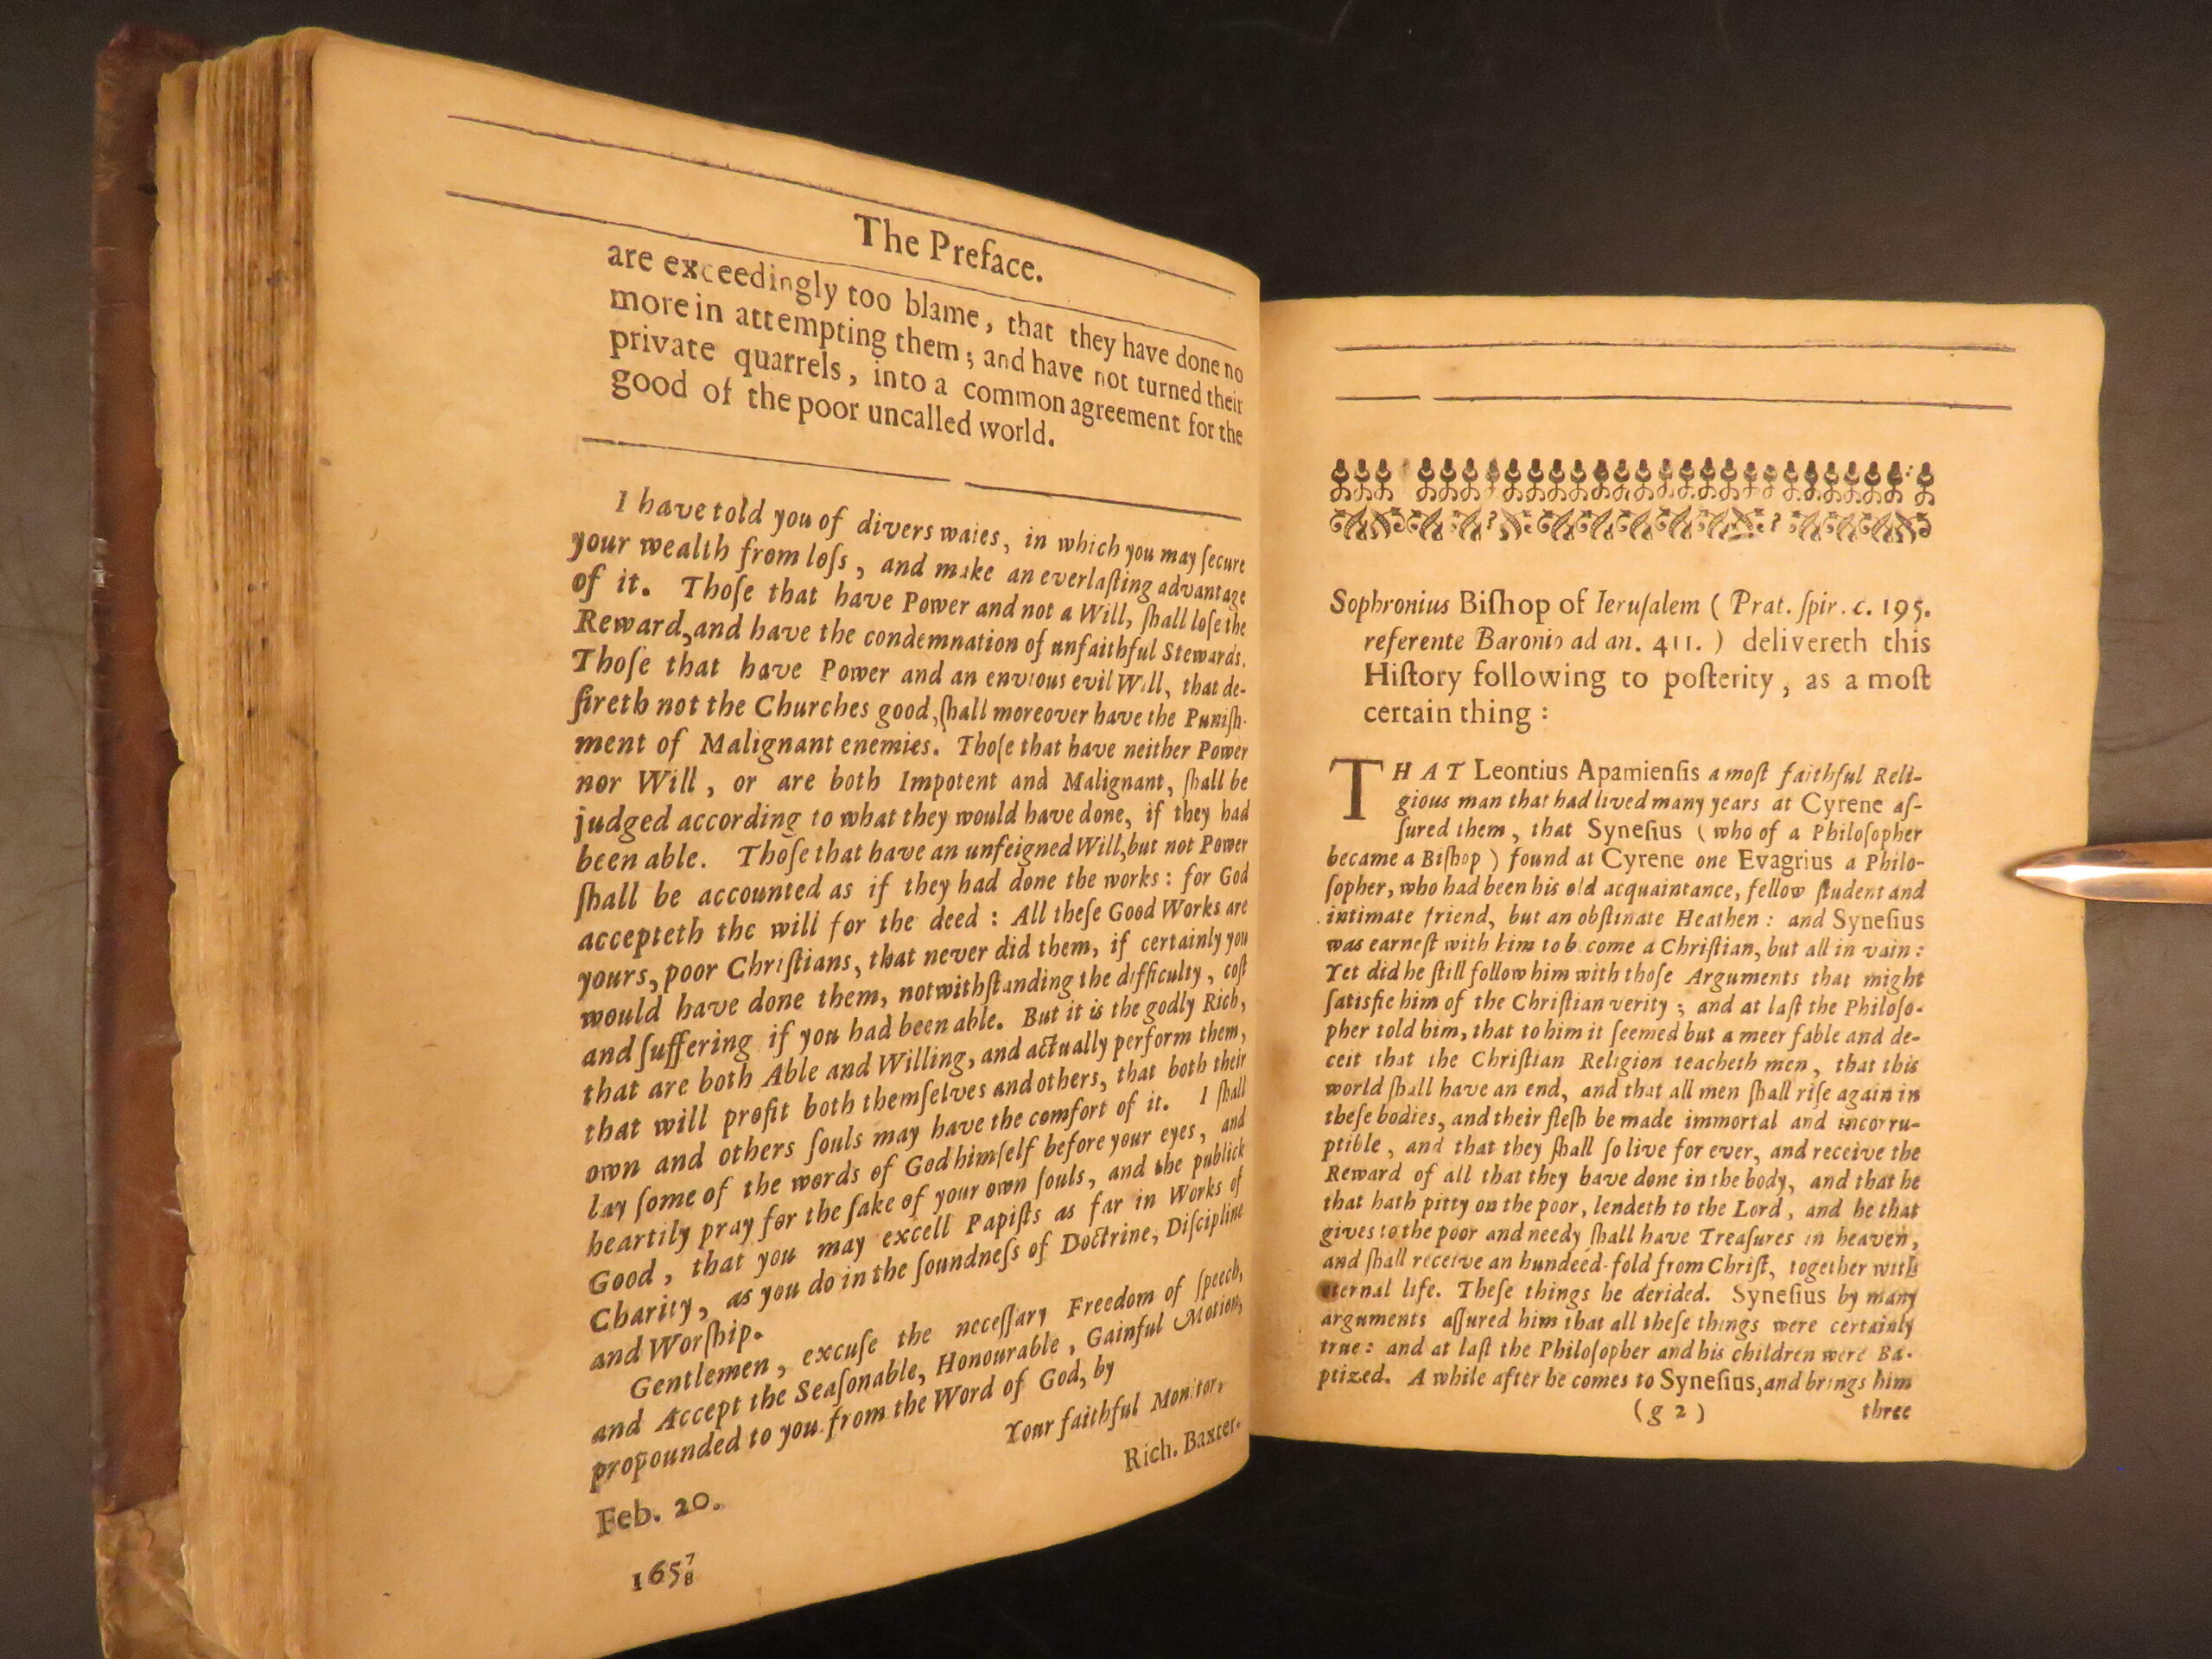 The Preface.
are exceedingly too blame, that they have done no
more in attempting them; and have not turned their
private quarrels, into a common agreement for the
good of the poor uncalled world.
I have told you of divers waies, in which you may ſecure
your wealth from loſs, and make an everlaſting advantage
of it. Thoſe that have Power and not a Will, ſhall loſe the
Reward, and have the condemnation of unfaithful Stewards.
Thoſe that have Power and an envious evil Will, that de-
ſireth not the Churches good, ſhall moreover have the Puniſh-
ment of Malignant enemies. Thoſe that have neither Power
nor Will, or are both Impotent and Malignant, ſhall be
judged according to what they would have done, if they had
been able. Thoſe that have an unfeigned Will, but not Power
ſhall be accounted as if they had done the works: for God
accepteth the will for the deed: All theſe Good Works are
yours, poor Chriſtians, that never did them, if certainly you
would have done them, notwithſtanding the difficulty, coſt
and ſuffering if you had been able. But it is the godly Rich,
that are both Able and Willing, and actually perform them,
that will profit both themſelves and others, that both their
own and others ſouls may have the comfort of it. I ſhall
lay ſome of the words of God himſelf before your eyes, and
heartily pray for the ſake of your own ſouls, and the publick
Good, that you may excell Papiſts as far in Works of
Charity, as you do in the ſoundneſs of Doctrine, Diſcipline
and Worſhip.
Gentlemen, excuſe the neceſſary Freedom of ſpeech,
and Accept the Seaſonable, Honourable, Gainful Motion,
propounded to you from the Word of God, by
Your faithful Monitor,
Rich. Baxter.
Feb. 20.
165 7/8
Sophronius Biſhop of Ieruſalem (Prat. ſpir. c. 195.
referente Baronio ad an. 411.) delivereth this
Hiſtory following to poſterity, as a moſt
certain thing:
THAT Leontius Apamienſis a moſt faithful Reli-
gious man that had lived many years at Cyrene aſ-
ſured them, that Syneſius (who of a Philoſopher
became a Biſhop) found at Cyrene one Evagrius a Philo-
ſopher, who had been his old acquaintance, fellow ſtudent and
intimate friend, but an obſtinate Heathen: and Syneſius
was earneſt with him to b come a Chriſtian, but all in vain:
Yet did he ſtill follow him with thoſe Arguments that might
ſatisfie him of the Chriſtian verity; and at laſt the Philoſo-
pher told him, that to him it ſeemed but a meer fable and de-
ceit that the Chriſtian Religion teacheth men, that this
world ſhall have an end, and that all men ſhall riſe again in
theſe bodies, and their fleſh be made immortal and incorru-
ptible, and that they ſhall ſo live for ever, and receive the
Reward of all that they have done in the body, and that he
that hath pitty on the poor, lendeth to the Lord, and he that
gives to the poor and needy ſhall have Treaſures in heaven,
and ſhall receive an hundeed-fold from Chriſt, together with
eternal life. Theſe things he derided. Syneſius by many
arguments aſſured him that all theſe things were certainly
true: and at laſt the Philoſopher and his children were Ba-
ptized. A while after he comes to Syneſius, and brings him
(g 2) three